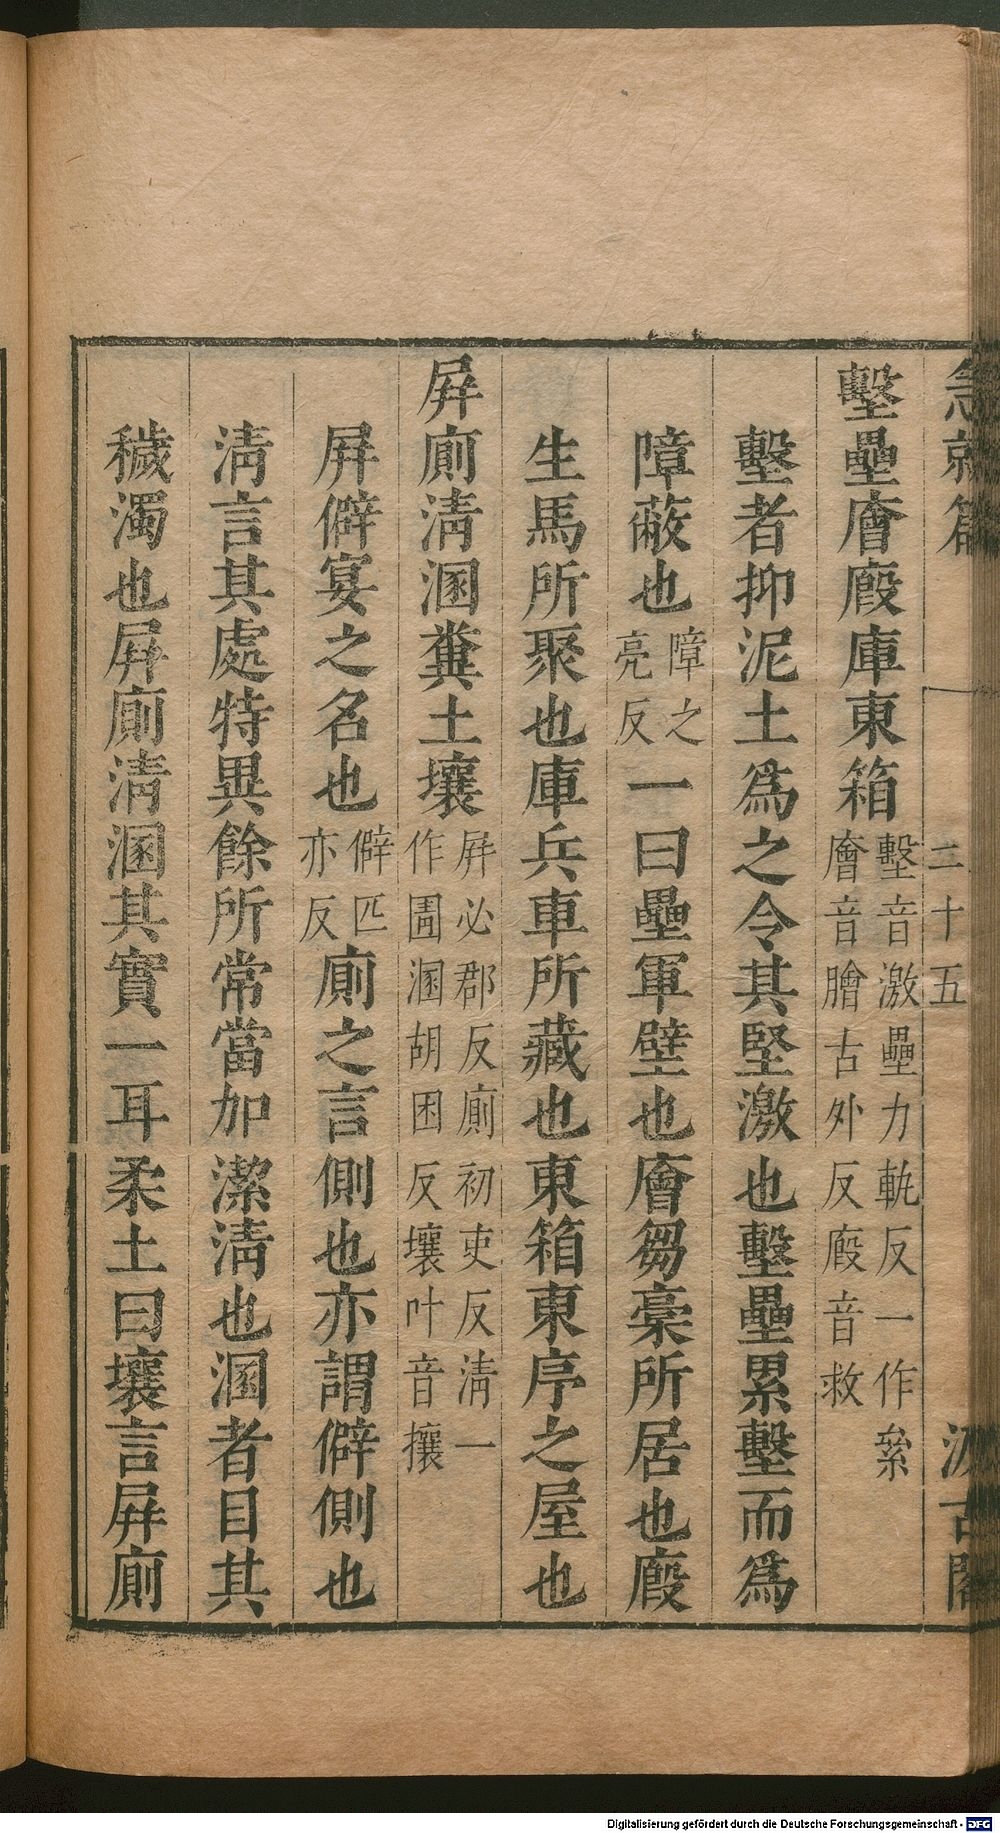 急就篇 二十五 汲古閣
墼壘廥廄庫東箱 墼音激壘力軌反一作絫
廥音膾古外反廄音救
墼者抑泥土爲之令其堅激也墼壘累墼而爲
障蔽也 障之
亮反 一曰壘軍壁也廥芻稾所居也廄
生馬所聚也庫兵車所藏也東箱東序之屋也
屛廁淸溷糞土壤 屛必郡反廁初吏反淸一
作圊溷胡困反壤叶音攘
屛僻宴之名也 僻匹
亦反 廁之言側也亦謂僻側也
淸言其處特異餘所常當加潔淸也溷者目其
穢濁也屛廁淸溷其實一耳柔土曰壤言屛廁
Digitalisierung gefördert durch die Deutsche Forschungsgemeinschaft - DFG